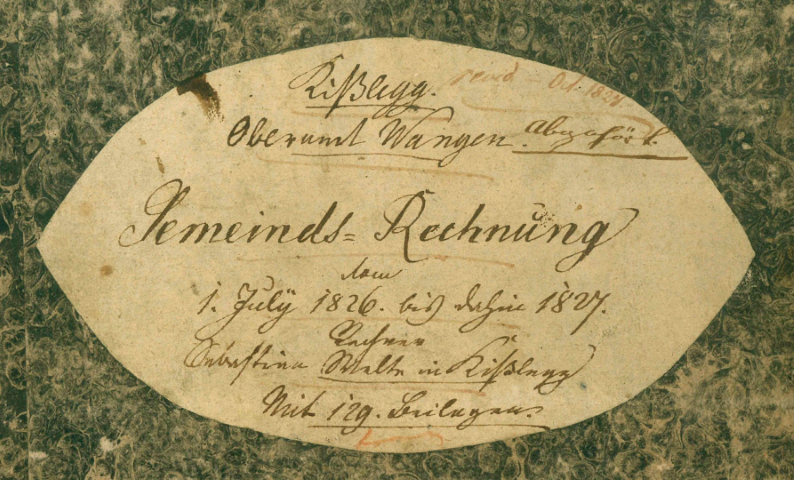 Kißlegg.
Oberamt Wangen. Abgehört.
Gemeinds=Rechnung
vom
1. July 1826. bis dahin 1827.
Rechner
Sebastian Welte in Kißlegg
Mit 129. Beilagen.